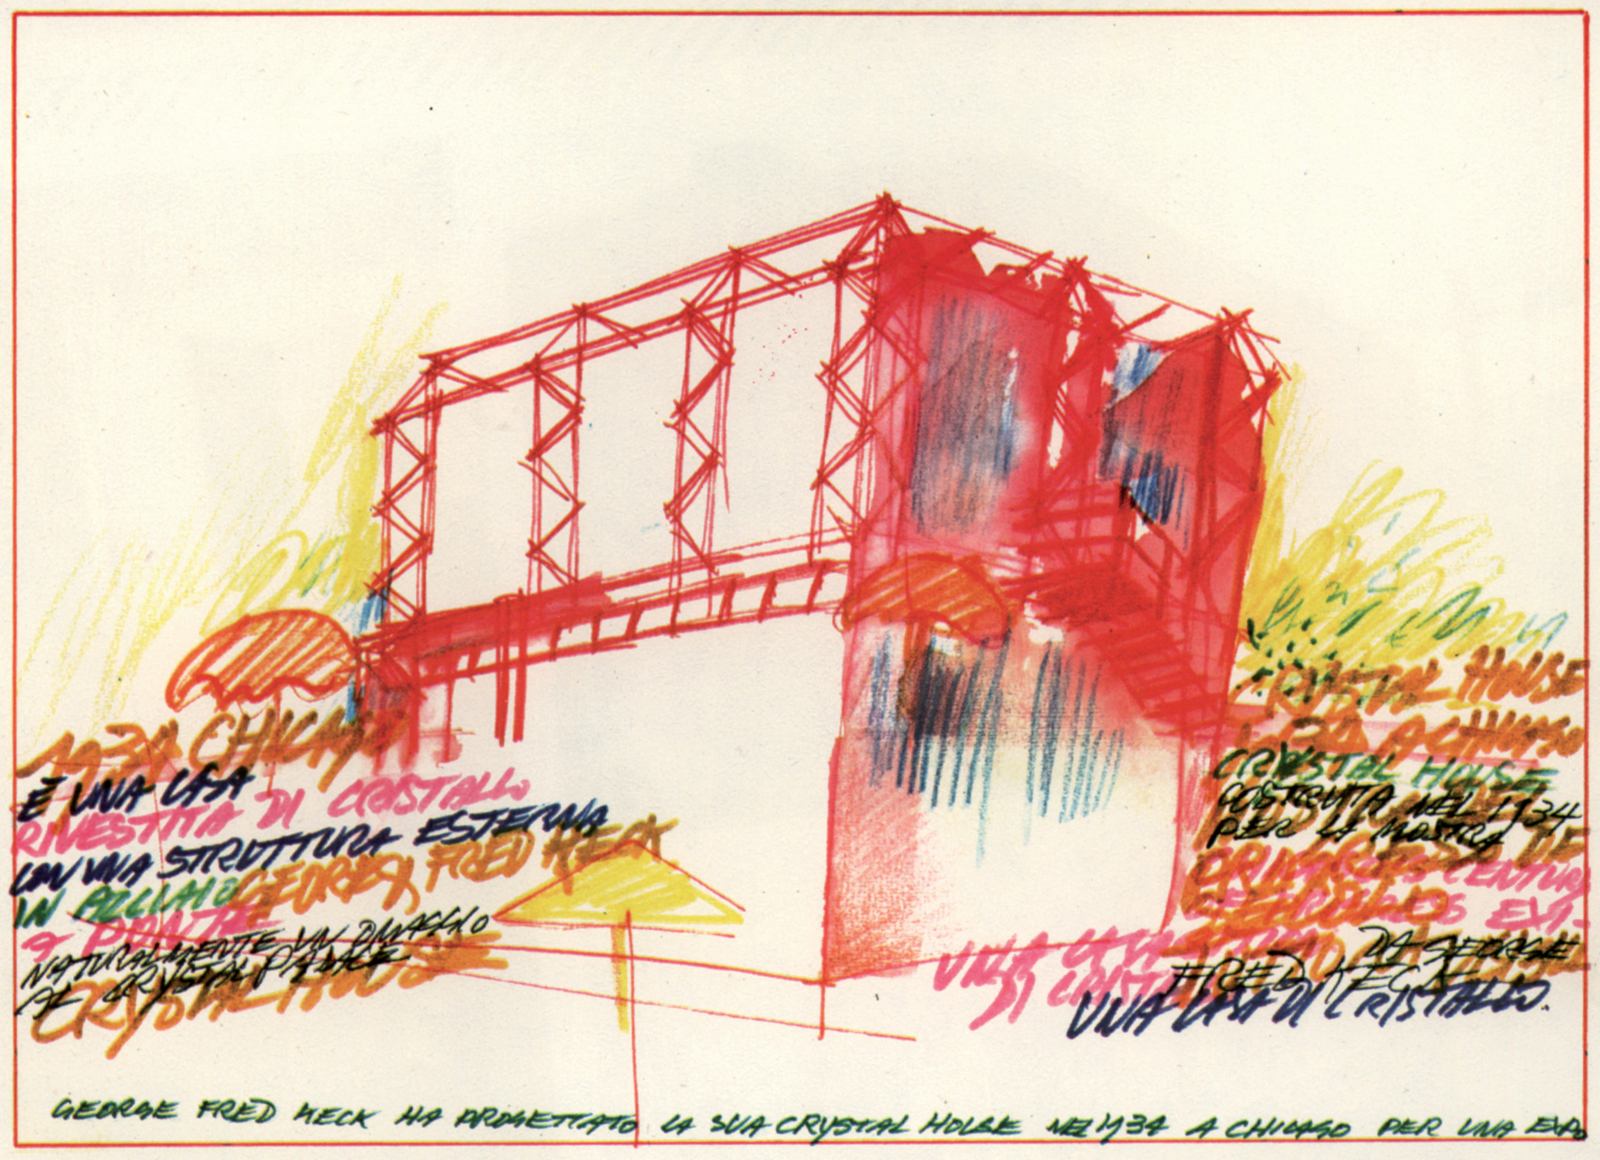 1934 CHICAGO
È UNA CASA
RIVESTITA DI CRISTALLO
CON UNA STRUTTURA ESTERNA
IN ACCIAIO GEORGE FRED KECK
A PONTE
NATURALMENTE UN OMAGGIO
AL CRYSTAL PALACE
CRYSTAL HOUSE
CRYSTAL HOUSE
1934 A CHICAGO
CRYSTAL HOUSE
COSTRUITA NEL 1934
PER LA MOSTRA
CENTURY
UNA CASA
DA GEORGE
FRED KECK
DI CRIST
UNA CASA DI CRISTALLO.
GEORGE FRED KECK HA PROGETTATO LA SUA CRYSTAL HOUSE NEL 1934 A CHICAGO PER UNA EXPO